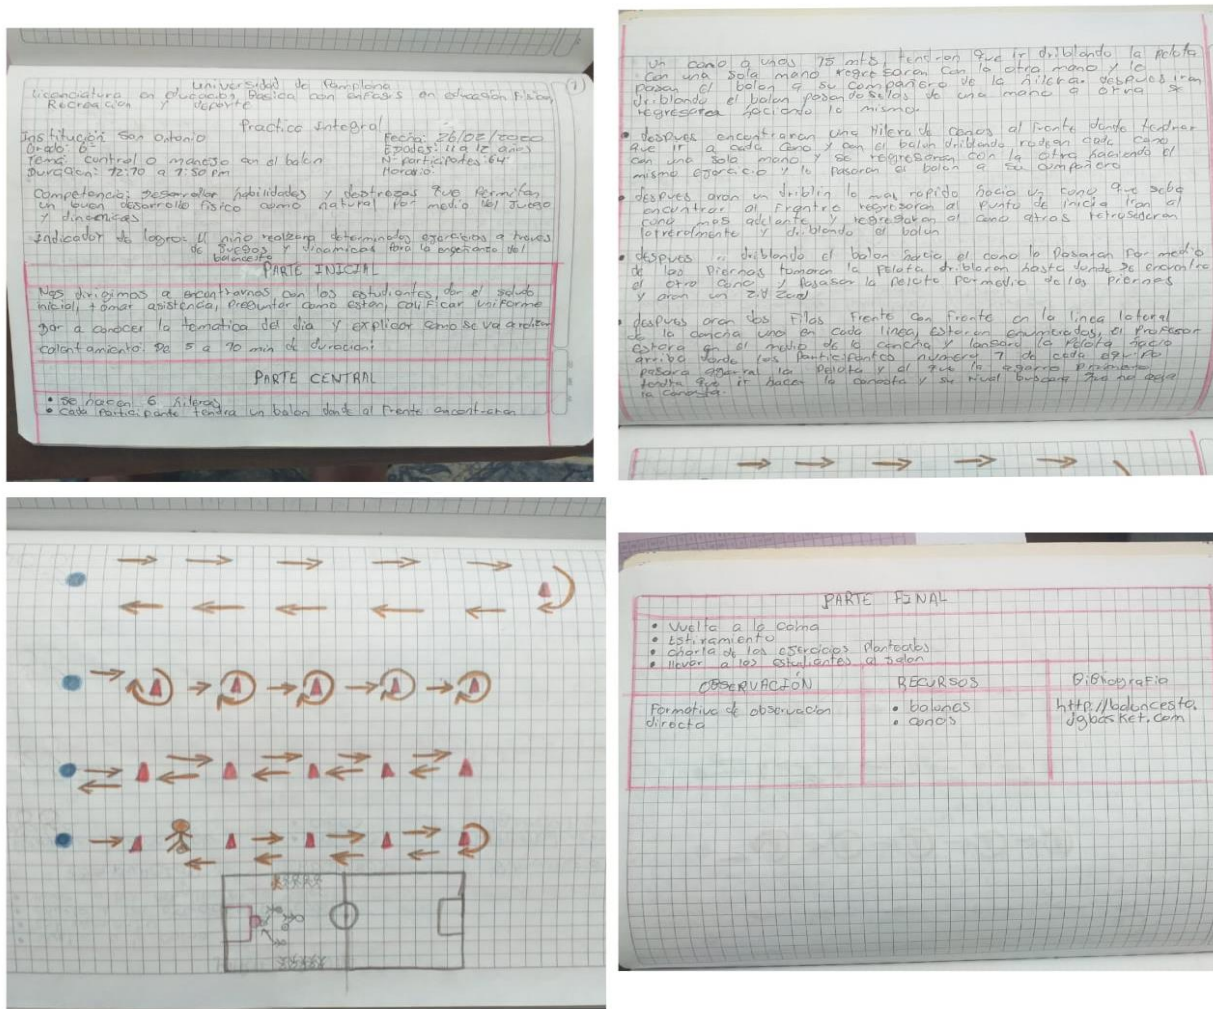 Universidad de Pamplona
Licenciatura en educacion Basica con enfasis en educación Fisica,
Recreación y deporte
Practica Integral
Institución San antonio Fecha: 26/02/2020
Grado: 6° Edades: 11 a 12 años
Tema: control o manejo en el balon N° participantes: 64
Duración: 12:10 a 1:50 pm Horario:
Competencia: Desarrollar habilidades y destrezas que permitan
un buen desarrollo fisico como natural por medio del Juego
y dinamicas
Indicador de logros: El niño realizara determinados ejercicios a traves
de juegos y dinamicas para la enseñanza del
baloncesto
PARTE INICIAL
Nos dirigimos a encontrarnos con los estudiantes, dar el saludo
inicial, tomar asistencia, preguntar como estan, calificar uniforme
dar a conocer la tematica del dia y explicar como se va a realizar
calentamiento: De 5 a 10 min de duracion:
PARTE CENTRAL
• se hacen 6 hileras
• cada participante tendra un balon donde al frente encontraran
un cono a unos 15 mts, tendran que ir driblando la pelota
con una sola mano regresaran con la otra mano y le
pasan el balon a su compañero de la hilera. despues iran
driblando el balon pasandoselos de una mano a otra se
regresaran haciendo lo mismo.
• despues encontraran una hilera de conos al frente donde tendran
que ir a cada cono y con el balon driblando rodean cada cono
con una sola mano y se regresaran con la otra haciendo el
mismo ejercicio y le pasaran el balon a su compañero
• despues aran un driblin lo mas rapido hacia un cono que se
encontrar al frente regresaran al punto de inicia iran al
cono mas adelante y regresaran al cono atras retrosederan
lateralmente y driblando el balon
• despues driblando el balon hacia el cono lo pasaran por medio
de las piernas tomaran la pelota driblaran hasta donde se encontra
el otro cono y pasaran la pelota por medio de las piernas
y aran un zig zag
• despues aran dos filas frente con frente en la linea lateral
de la cancha uno en cada linea, estaran enumerados, el profesor
estara en el medio de la cancha y lansara la pelota hacia
arriba donde los participantes numero 1 de cada equipo
pasara agarral la pelota y el que la agarro primero
tendra que ir hacer la canasta y su rival buscara que no aga
la canasta.
PARTE FINAL
• Vuelta a la calma
• Estiramiento
• charla de los ejercicios planteados
• llevar a los estudiantes al salon
OBSERVACIÓN RECURSOS Bibliografia
Formativa de observacion • balones http://baloncesto.
directa • conos jgbasket.com